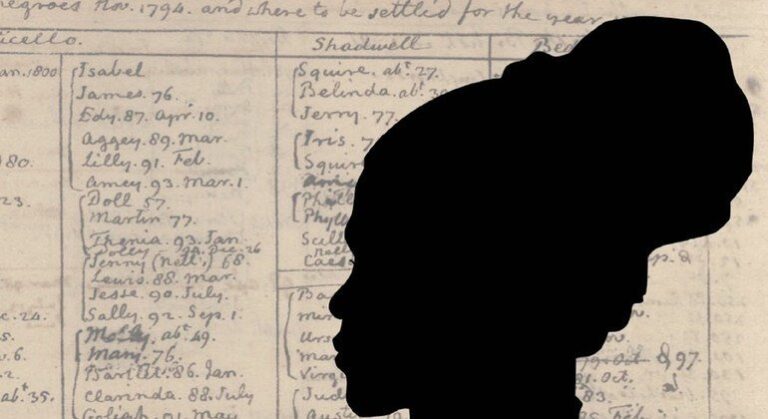 negroes Nov. 1794. and where to be settled for the year
icello.
Shadwell
Be
an. 1800
Isabel
James. 76.
Edy. 87. Apr. 10.
Aggey. 89. Mar.
Lilly. 91. Feb.
Amey. 93. Mar. 1.
Doll 57.
Martin 77.
Thenia. 93. Jan
Dolly. 94. Dec. 26
Jenny (Ned's) 68.
Lewis. 88. Mar.
Jesse. 90. July.
Sally. 92. Sep. 1.
Molly. abt. 49.
Mary. 76.
Bartlet. 86. Jan.
Clarinda. 88. July
Goliah. 91. May
80.
23.
c. 24.
5.
v. 6.
2.
abt 35.
Squire. abt. 27.
Belinda. abt. 3
Jerry. 77.
Iris. 7
Squir
Phil
Phyll
Scill
Caes
Ba
Urs
Mar
Virg
Jud
Aust
p. 2
Oct 97.
Oct.
83.